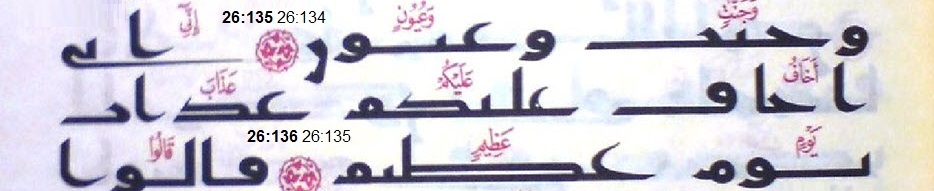 وَجَنَّٰتٍ وَعُيُونٍ 26:135 26:134 إِنِّيٓ
وجنت وعيون انى
أَخَافُ عَلَيْكُمْ عَذَابَ
اخاف عليكم عذاب
يَوْمٍ عَظِيمٍ 26:136 26:135 قَالُوا
يوم عظيم قالوا